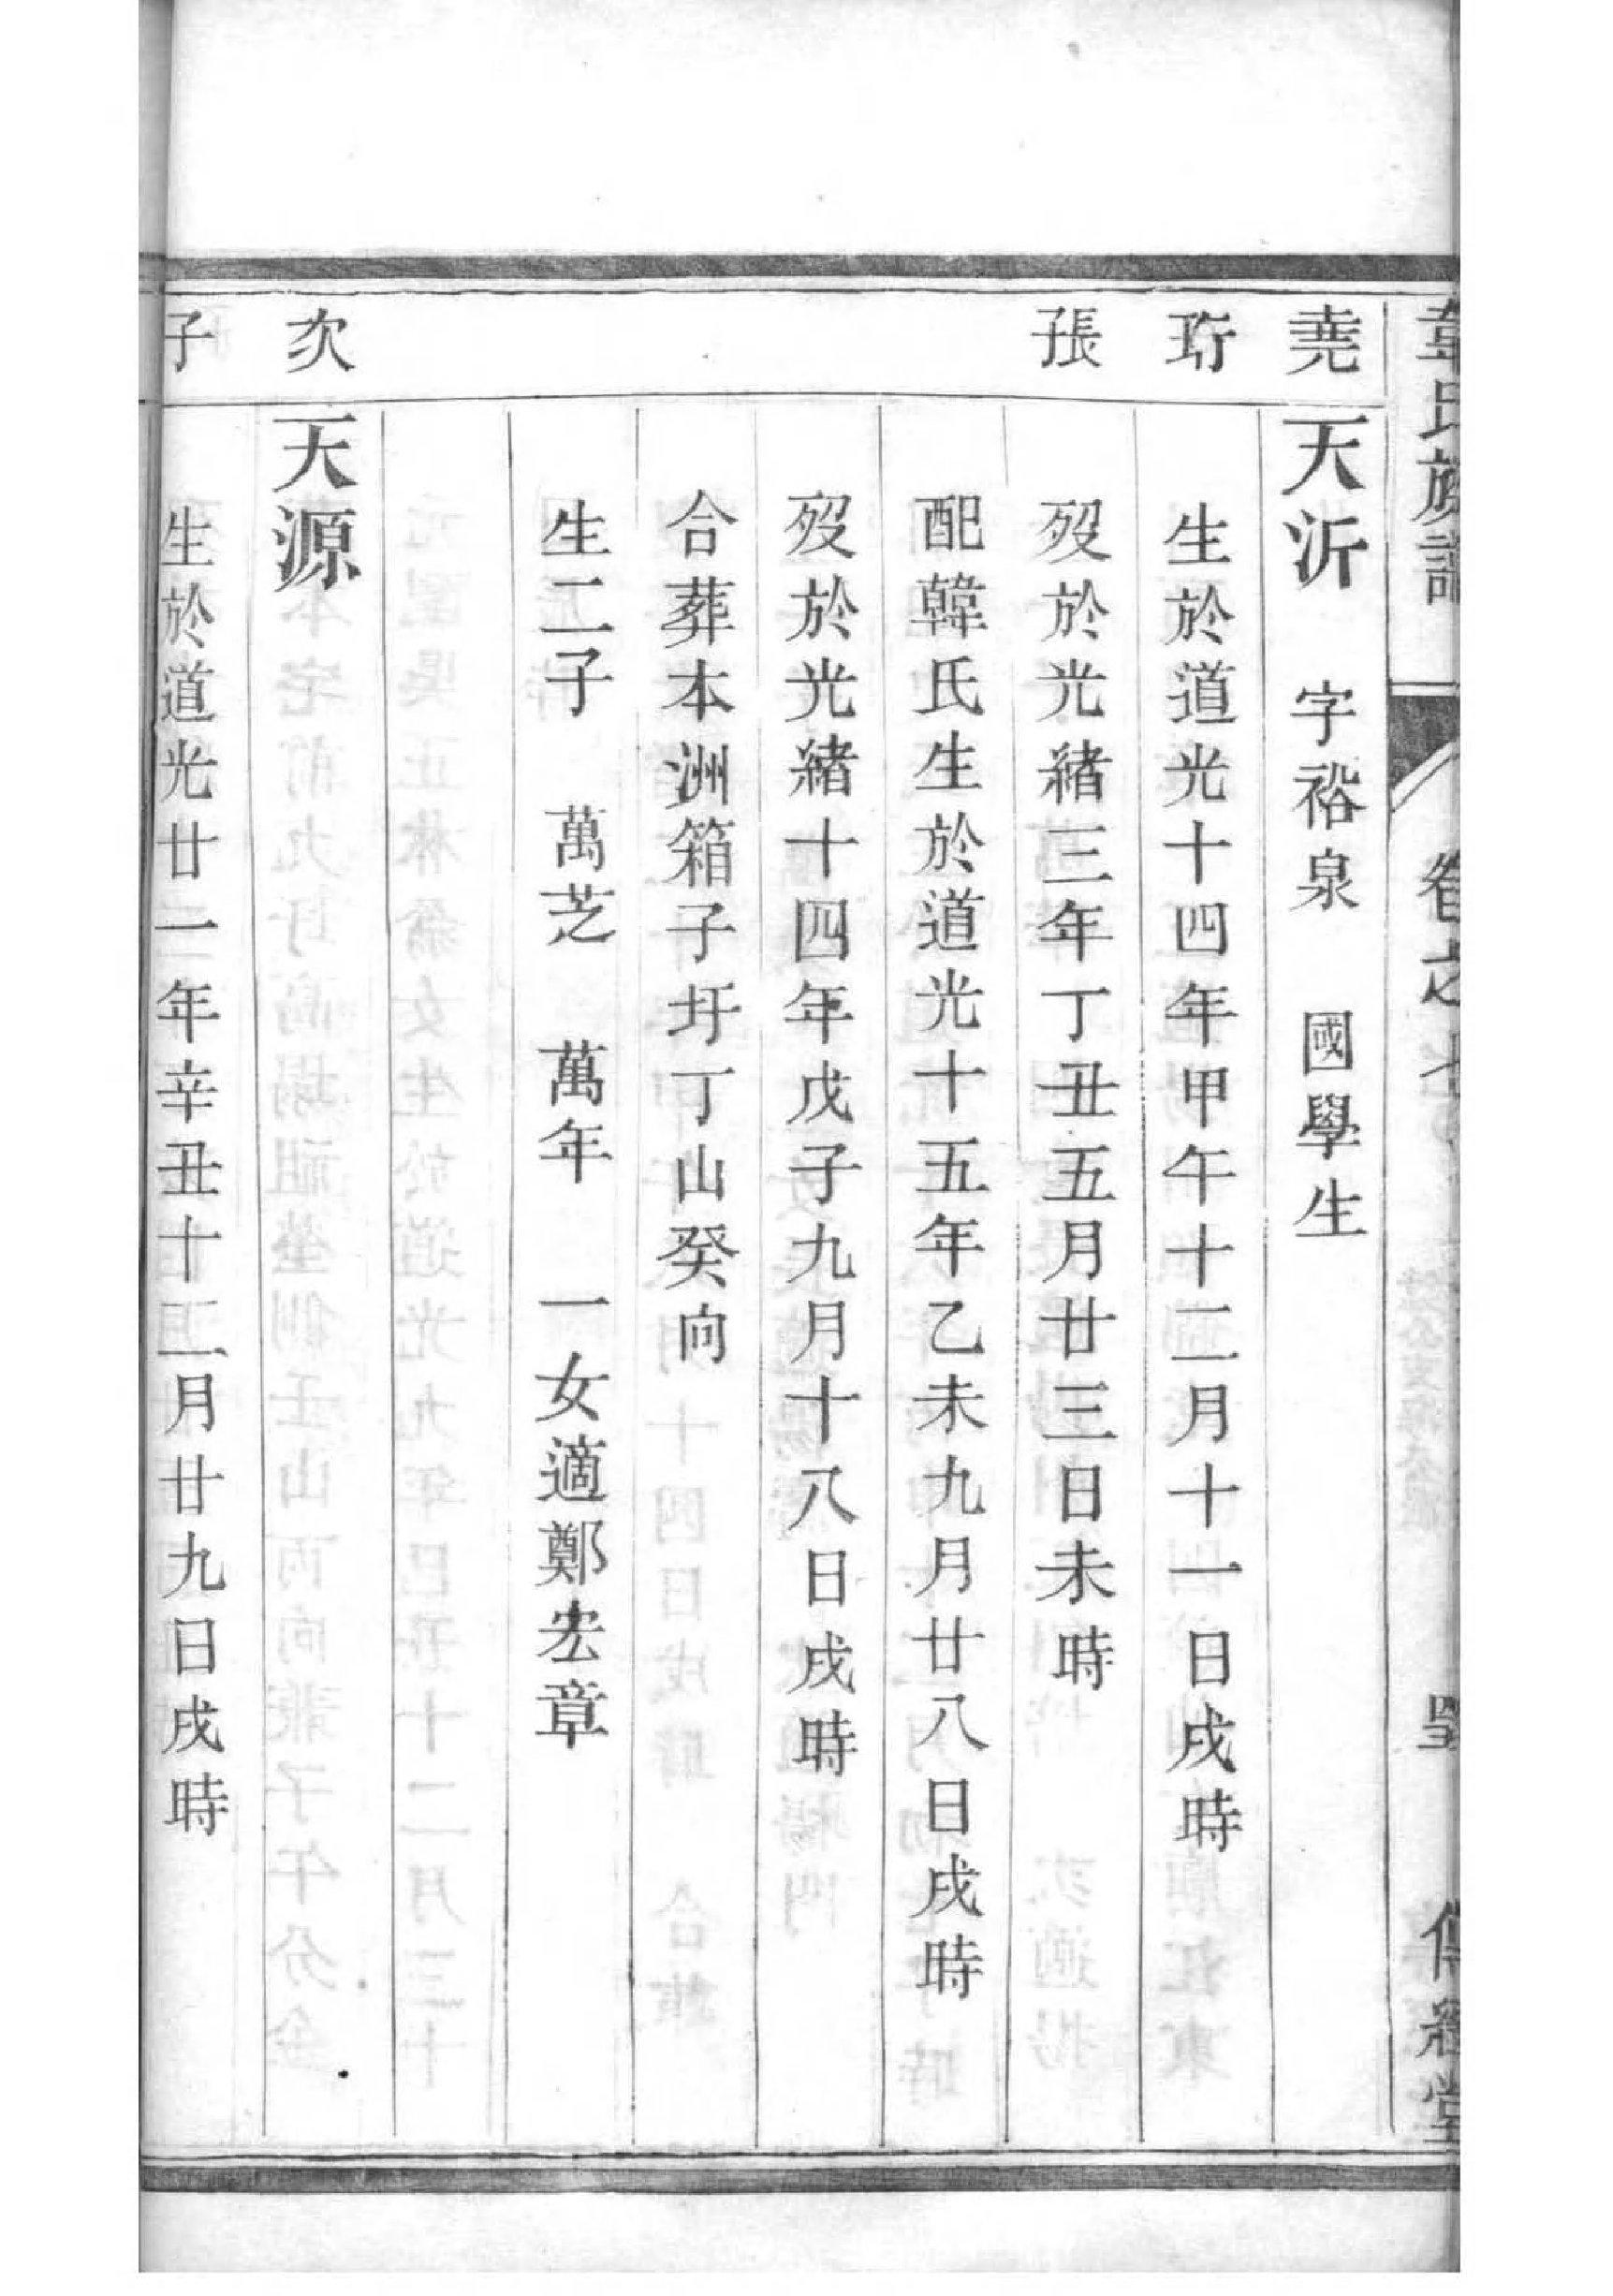 韋氏族譜 卷之七 傳經堂
堯 珩 長子
天沂 字裕泉 國學生
生於道光十四年甲午十二月十一日戌時
歿於光緒三年丁丑五月廿三日未時
配韓氏生於道光十五年乙未九月廿八日戌時
歿於光緒十四年戊子九月十八日戌時
合葬本洲箱子圩丁山癸向
生二子 萬芝 萬年 一女適鄭宏章
次 子
天源
生於道光廿一年辛丑十二月廿九日戌時